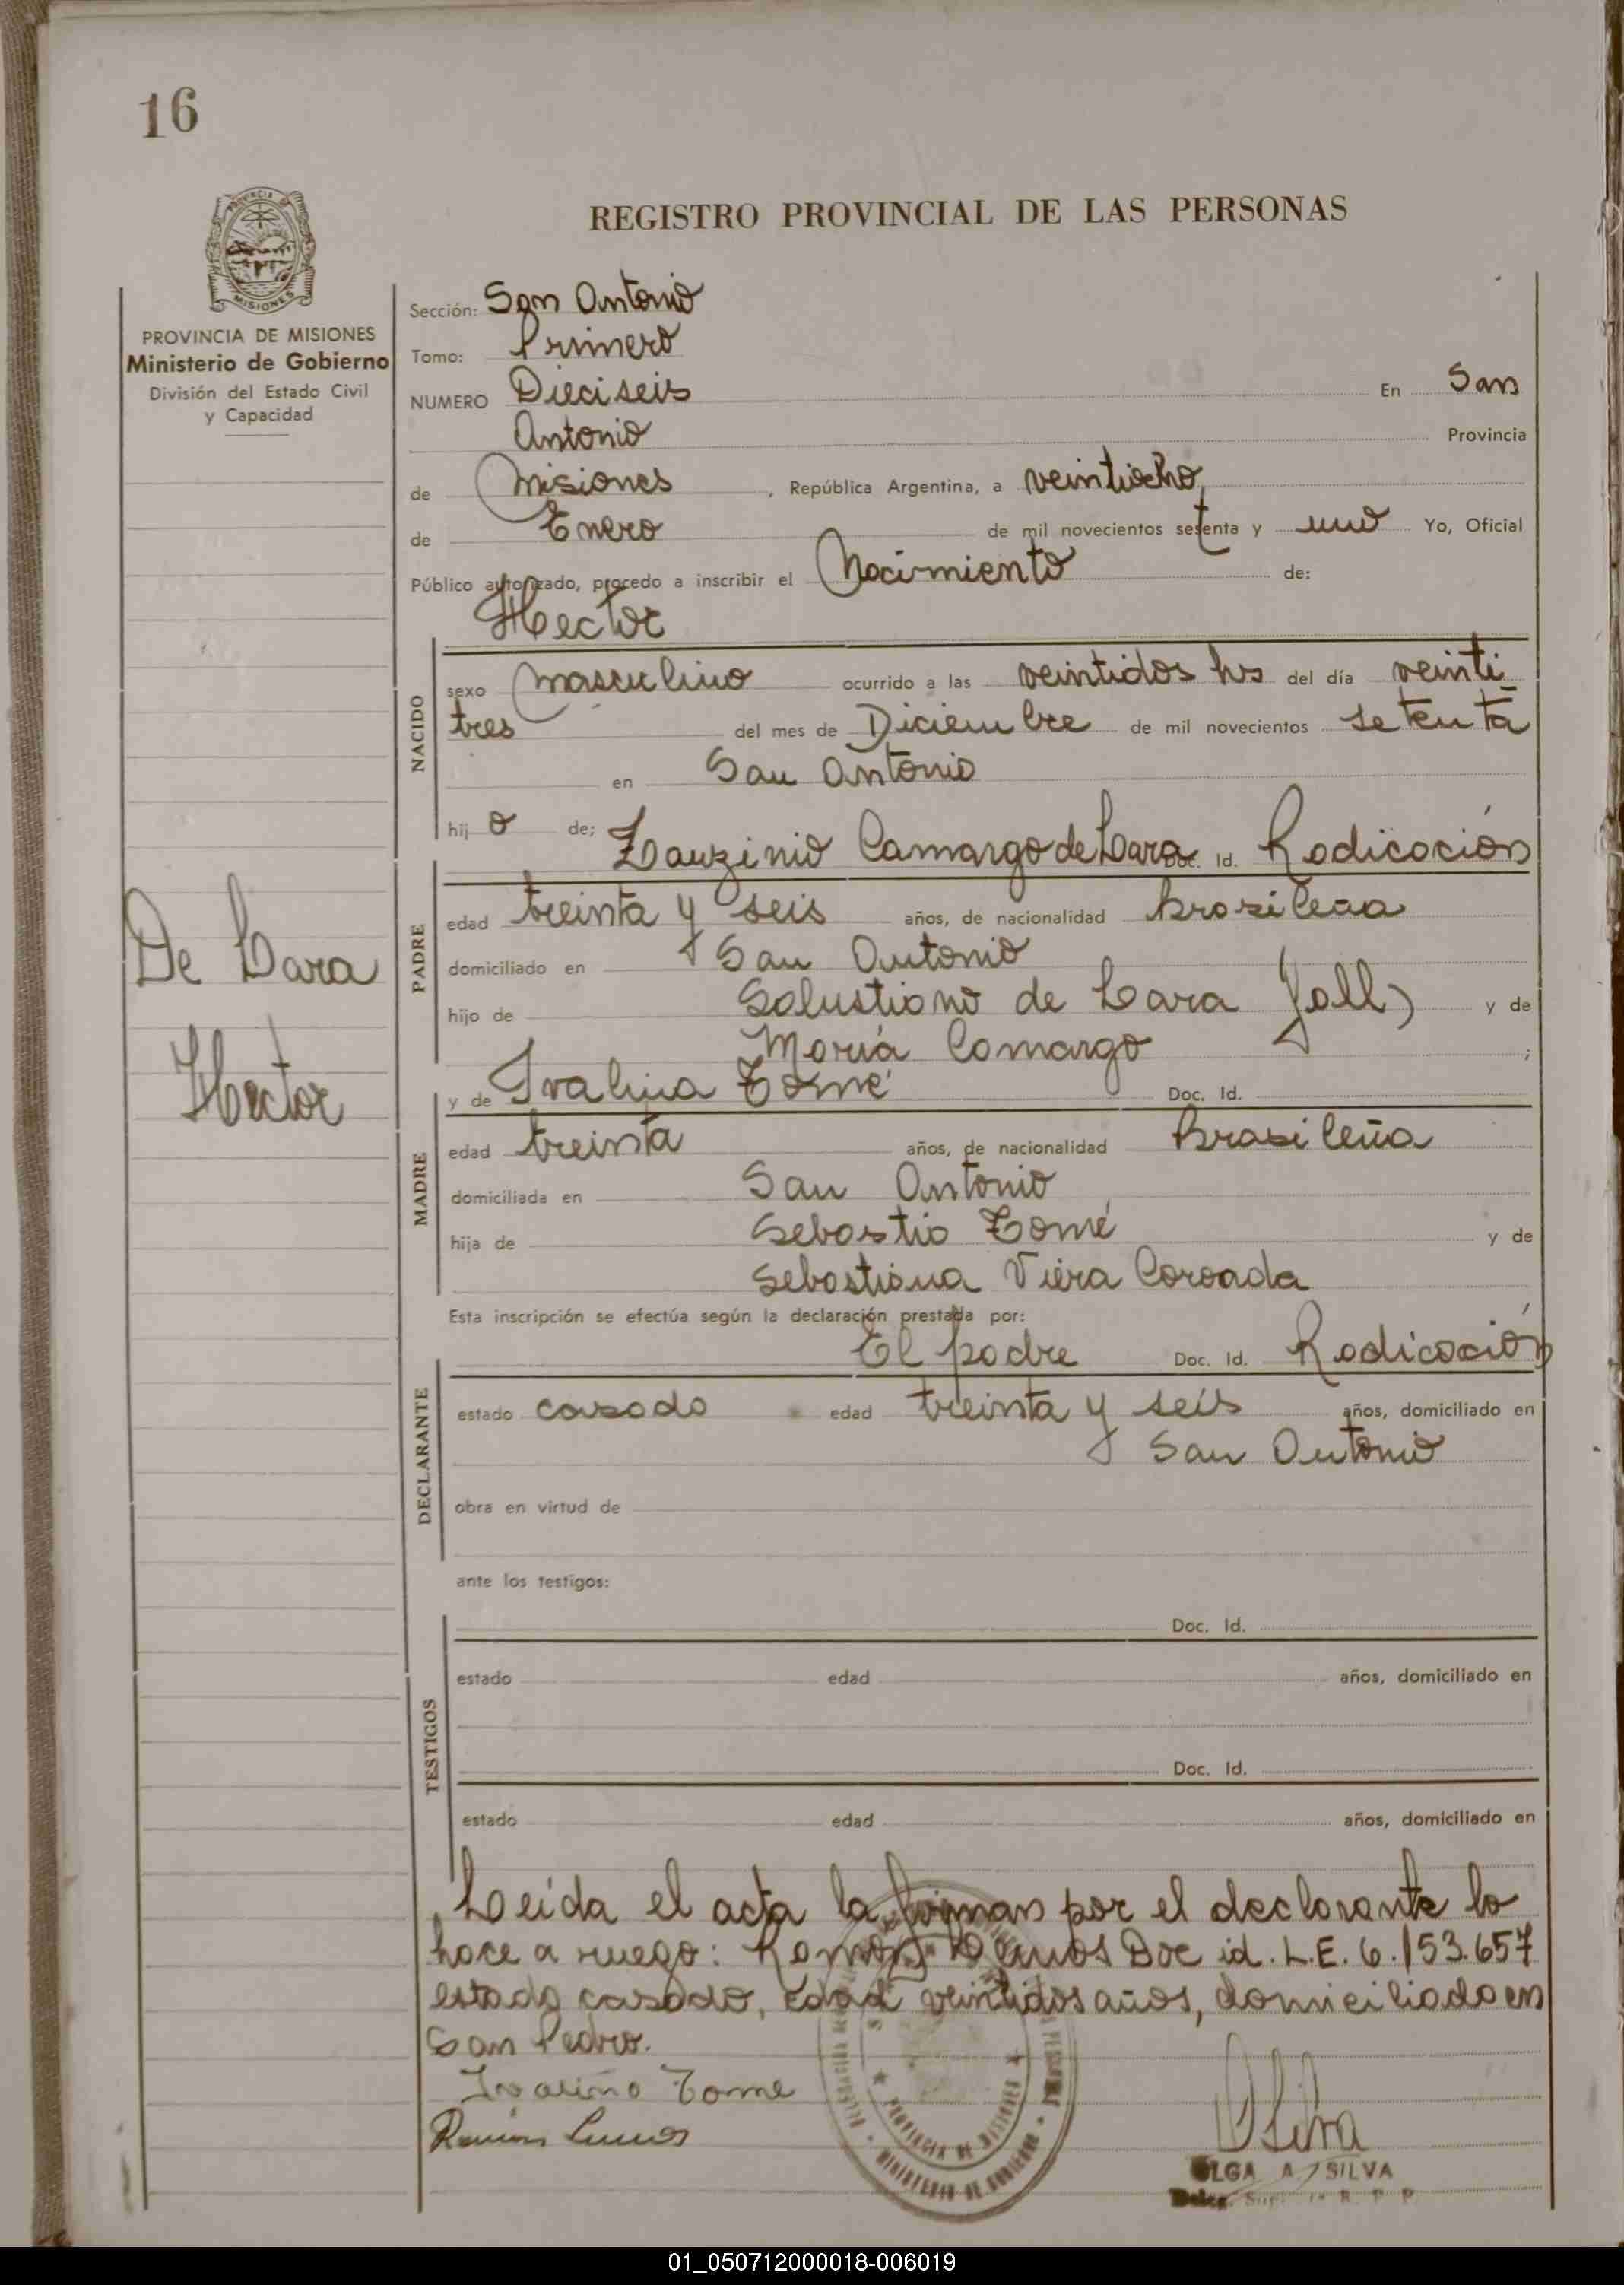 16
PROVINCIA DE MISIONES
Ministerio de Gobierno
División del Estado Civil
y Capacidad
De Lara
Hector
REGISTRO PROVINCIAL DE LAS PERSONAS
Sección: San Antonio
Tomo: Primero
NUMERO Dieciseis En San
Antonio Provincia
de Misiones, República Argentina, a veintiocho,
de Enero de mil novecientos setenta y uno Yo, Oficial
Público autorizado, procedo a inscribir el Nacimiento de:
Hector
NACIDO
sexo Masculino ocurrido a las veintidos hs del día veinti
tres del mes de Diciembre de mil novecientos setenta
en San Antonio
hij o de; Camargo de Lara Doc. Id. Radicación
PADRE
edad treinta y seis años, de nacionalidad brasileña
domiciliado en San Antonio
hijo de Salustiano de Lara y de
María Camargo ;
y de Ivalina Tomé Doc. Id.
MADRE
edad treinta años, de nacionalidad Brasileña
domiciliada en San Antonio
hija de Sebastio Tomé y de
Sebastiana Viera Coroada
Esta inscripción se efectúa según la declaración prestada por:
El padre Doc. Id. Radicación
DECLARANTE
estado casado edad treinta y seis años, domiciliado en
San Antonio
obra en virtud de
ante los testigos:
Doc. Id.
TESTIGOS
estado edad años, domiciliado en
Doc. Id.
estado edad años, domiciliado en
Leida el acta la firman por el declarante lo
hace a ruego: Ramon Doc id. L.E. 6.153.657
estado casado, edad veintidos años, domiciliado en
San Pedro.
Tome
Ramon
PROVINCIA DE MISIONES
MINISTERIO DE GOBIERNO
OSilva
OLGA A. SILVA
R. P. P.
01_050712000018-006019